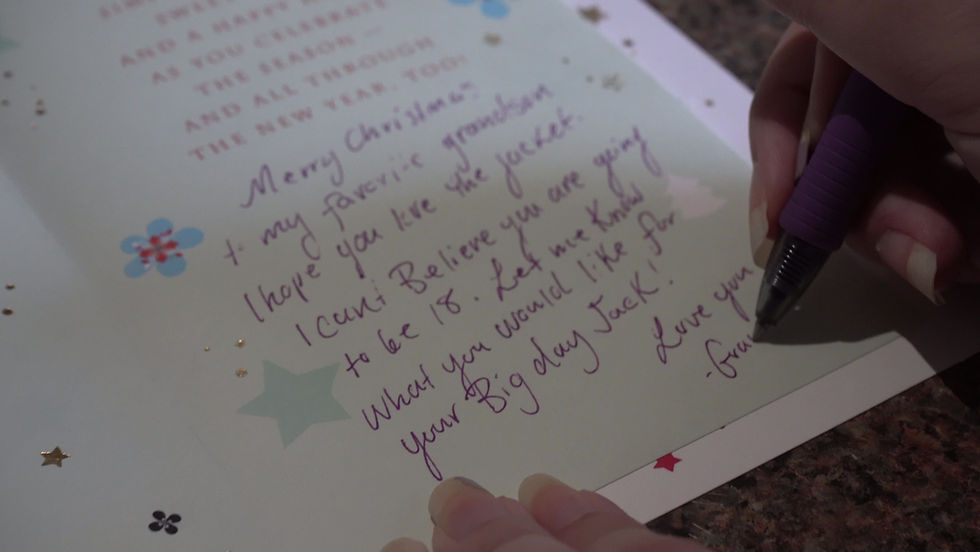 AND A HAPPY
AS YOU CELEBRATE
THE SEASON —
AND ALL THROUGH
THE NEW YEAR, TOO!
Merry Christmas
to my favorite grandson
I hope you love the jacket.
I can't Believe you are going
to be 18. Let me know
What you would like for
your Big day Jack!
Love you
-Gra